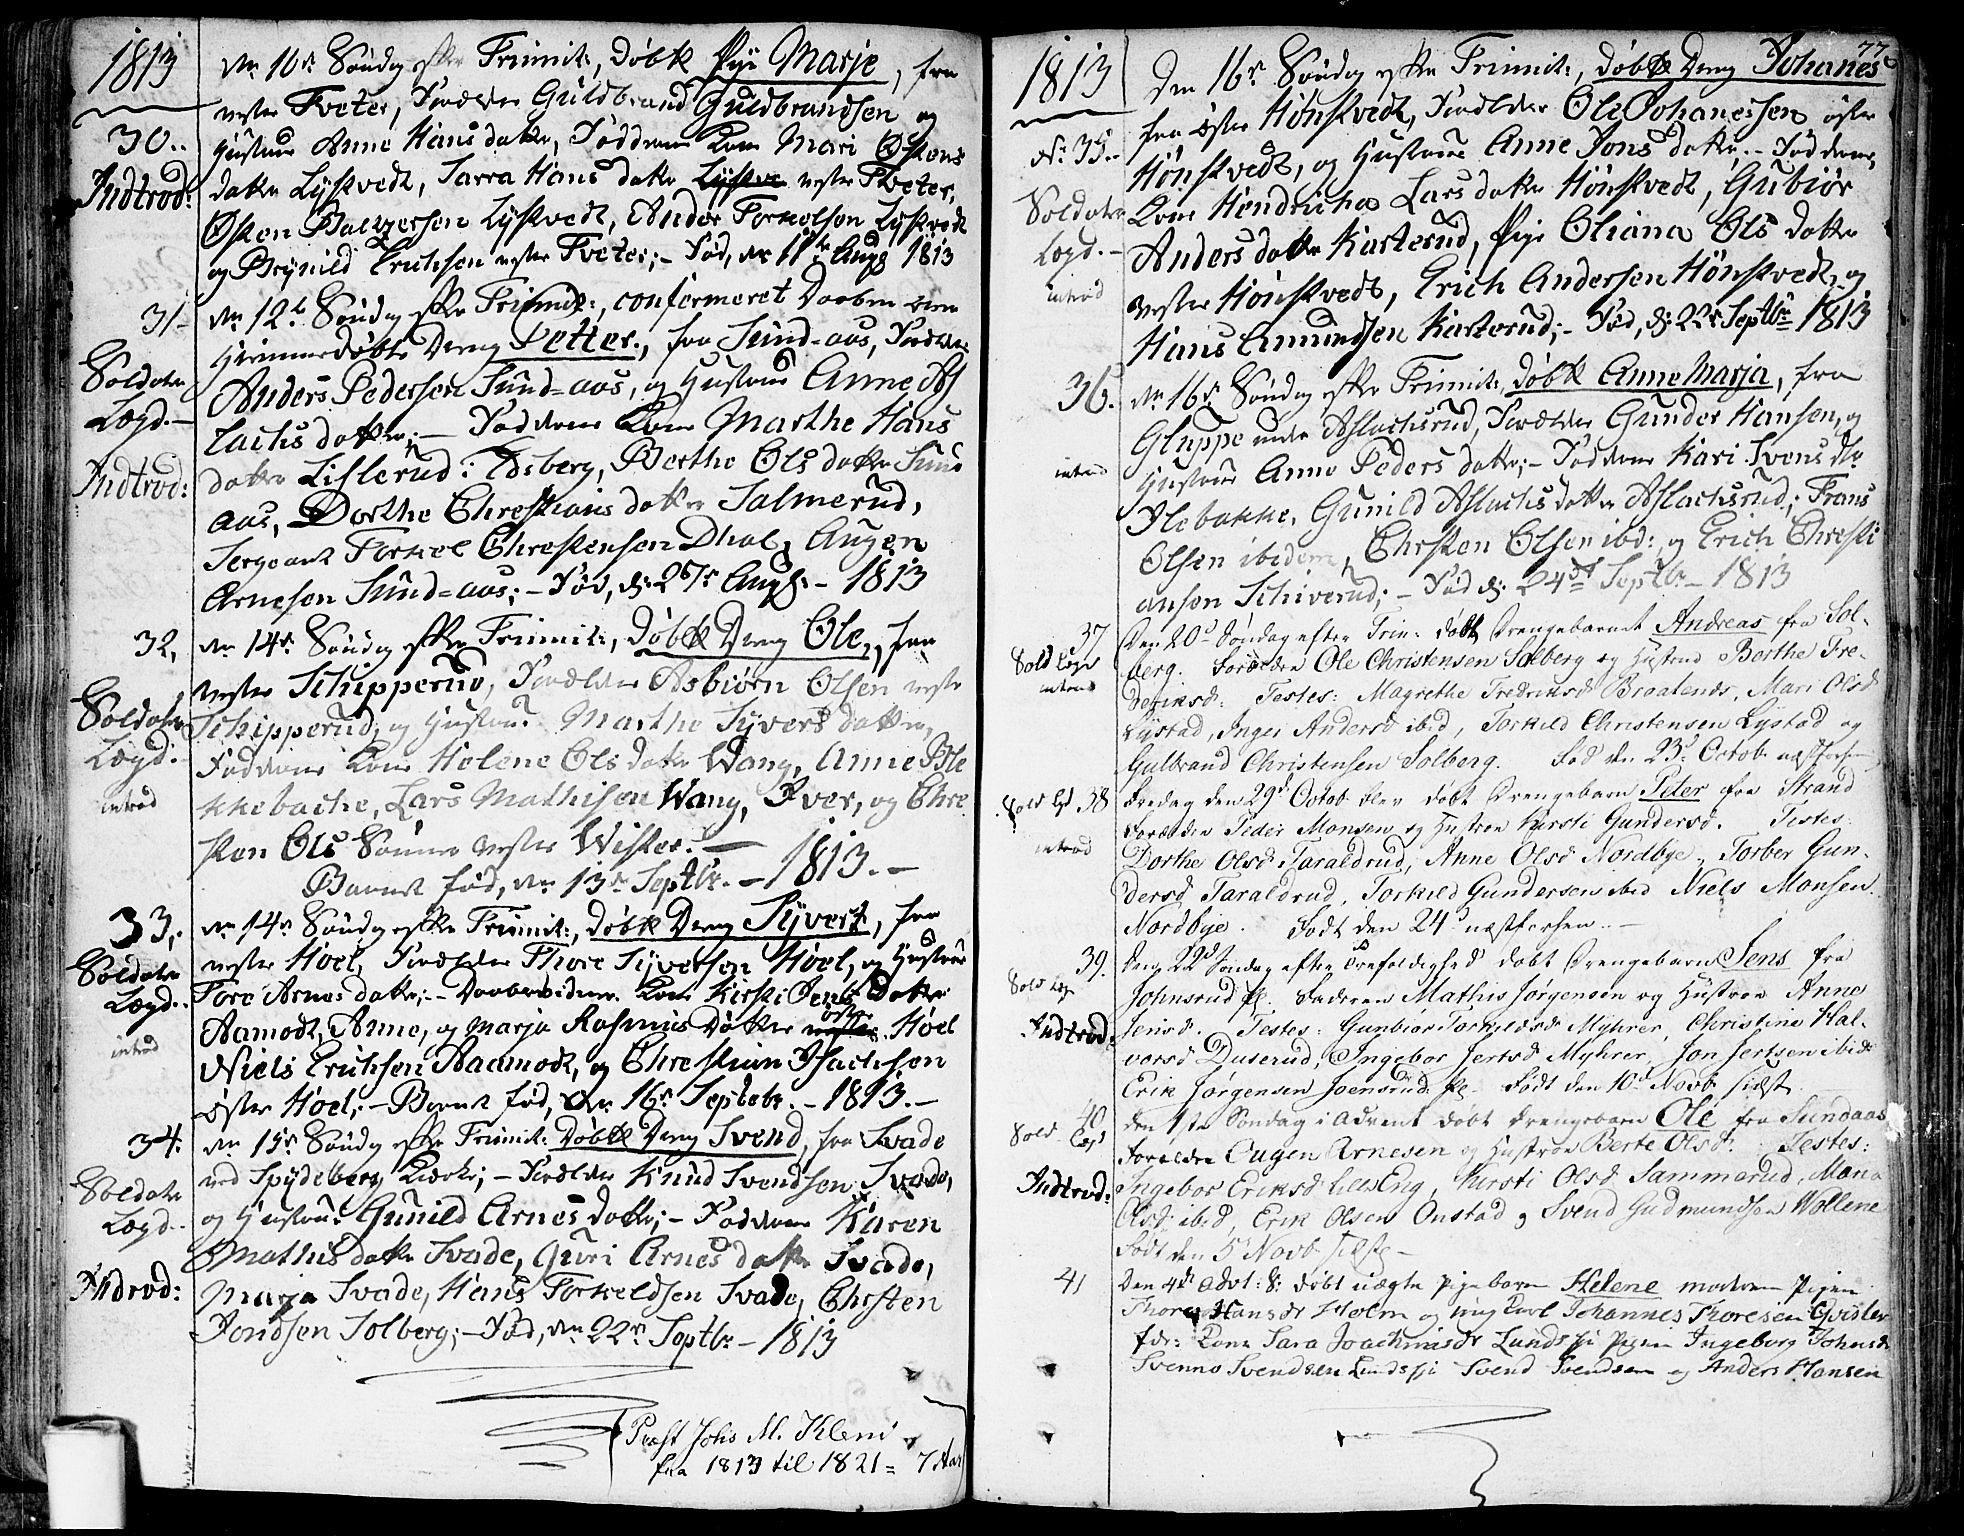 1813
dn 16de Søndag efter Trinit:, døbt Pige Marje, fra
30..
vestre Tveter, Forældre Guldbrand Guldbrandsen og
Hustrue Anne Hans datter, Fadderne Kone Mari Østens
Indtrod:
datter Lystvedt, Sarra Hans datter vestre Tveter,
Østen Balzersen Lystvedt, Anders Torkelsen Lystvedt
og Brynild Erichsen vestre Tveter;- Fød, dn 11te Aug 1813
31-
dn 12te Søndag efter Trinit:, confermeret Daaben over
hiemmedøbte Dreng Petter, fra Sund-aas, Forældre
Soldater
Anders Pedersen Sund-aas, og Hustrue Anne As
Lægd.-
lachs datter;- Fadderne Kone Marthe Hans
Indtrod:
datter Lislerud: Edsberg, Berthe Ols datter Sund
aas, Dorthe Chrestians datter Salmerud,
Sergeant Torkel Chrestensen Dhal, Augen
Arnesen Sund-aas;- Fød, d: 26de Augs:- 1813
32,
dn 14de Søndag efter Trinit:, døbt Dreng Ole, fra
vestre Schipperud, Forældre Asbiørn Olsen vestre
Soldater
Schipperud, og Hustrue Marthe Syvers datter,
Lægd:
Fadderne Kone Helene Ols datter Wang, Anne Ble
introd
kkebache, Lars Mathisen Wang, Iver, og Chre
sten Ols Sønner vestre Wister.-
Barnet fød, dn 13de Septbr.- 1813.-
33,.
dn 14de Søndag efter Trinit:, døbt Dreng Syvert, fra
vestre Hoel, Forældre Thore Syversen Hoel, og Hustrue
Soldater
Tore Arnes datter;- Daabsvidner Kone Kirsti Jens Datter
Lægd..
Aamodt, Anne, og Marja Rasmus Døttre øster Høel
introd
Niels Erichsen Aaamodt, og Chrestian Isachsen
øster Hoel;- Barnet fød, den 16de Septebr.- 1813.-
34.
dn 15de Søndag efter Trinit: Døbt Dreng Svend, fra Svade
Soldater
ved Spydeberg Kirke;- Forældre Knud Svendsen Svade,
Lægd..
og Hustrue Gunild Arnes datter;- Fadderne Karen
Mathis datter Svade, Guri Arnes datter Svade,
Indtrod:
Marja Svade, Hans Torkeldsen Svade, Chrsten
Jondsen Solberg;- Fød, dn 22de Septbr- 1813
Præst Johs M. Klem
fra 1813 til 1821 = 7 Aar
77
1813
Den 16de Søndag efter Trinit:, døbt Dreng Johanes
fra øster Hønskvedt, Forældre Ole Johanessen øster
No 35..
Hønskvedt, og Hustrue Anne Jons datter,- Fadderne
Soldater
Kone Hendricha Lars datter Hønskvedt, Gubiør
Lægd.-
Anders datter Karterud, Pige Oliana Ols datter
introd
vestre Hønskvedt, Erich Andersen Hønskvedt, og
Hans Amundsen Karterud;- Fød, d: 22de Septbr 1813
36.
dn 16de Søndag efter Trinit:, døbt Anne Marja, fra
Gluppe under Aslachsrud, Forældre Gunder Hansen, og
introd
Hustrue Anne Peders datter;- Fadderne Kari Svens dtr
Ilebakke, Gunild Aslachs datter Aslachsrud; Frans
Olsen ibidem, Chrsten Olsen ibd:, og Erich Chresti
ansen Schiverud;- Fød d: 24de Septbr- 1813
37
Den 20d Søndag efter Trin: døbt Drengebarnet Andreas fra Sol-
Sold Lægd
berg. Forældre Ole Christensen Solberg og Hustrue Borthe Fre-
introd
deriksd: Testes: Magrethe Fredriksd Braatened, Mari Olsd
Lystad, Inger Andersd ibid, Torkild Christensen Lystad og
Gulbrand Christensen Solberg. Fød den 23d Octob næstforhen
Sold Lgd 38
Fredag den 29d Octob blev døbt Drengebarn Peter fra Strand
Forældre Peder Monsen og Hustrue Kirsti Gundersd. Testes:
introd
Dorthe Olsd Taraldrud, Anne Olsd Nordbye, Torber Gun-
dersd Taraldrud, Torkild Gundersen ibid Niels Monsen
Nordbye. Født den 24d næstforhen.-
39.
Den 22d Søndag efter Trefoldighed døbt Drengebarn Jens fra
Sold Læg
Johnsrud pl. Faderen Mathis Jørgensen og Hustroe Anne
Indtrod:
Jensd. Testes: Gunbior Torkildsd Myhrer, Christine Hal-
vorsd Duserud, Ingebor Jertsd Myhrer, Jon Jertsen ibid
Erik Jørgensen Joensrud pl- Født den 10d Novb sidst
40
Den 1ste Søndag i Advent døbt Drengebarn Ole fra Sundaas
Sold Lægd
Forældre Eugen Arnesen og Hustroe Berte Olsd. Testes:
Indtrod:
Ingebor Eriksd LilleEng, Kirsti Olsd Sammerud, Maria
Olsd ibid, Erik Olsen Onstad og Svend Gudmundsen Wollene
Født den 5d Novb sidste-
41
Den 4de Advt: S: Døbt uægte Pigebarn Helene moderen Pigen
Thore Hansdr Holm og ung Karl Johannes Thoresen Gvistler
Fdr: Kone Sara Joachmsdr Lundssie Pigen Ingeborg Johnsdr
Svenno Svendsen Lundssie Svend Svendsen og Anders Hansen